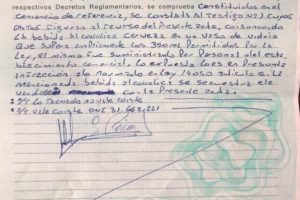 respectivos Decretos Reglamentarios, se comprueba Constituidos en el
comercio de referencia, se constata al Testigo N°1 cuyos
datos Figuran al reverso del Presente acta, consumiendo
la bebida alcoholica Cerveza en un vaso de vidrio
que supera los Permitidos Por la
Ley, el mismo fue suministrado Por Personal del esta
blecimiento comercial. lo expuesto es en Presunta
infracción a lo normado en Ley 14050 articulo 6. La
mencionada bebida alcoholica se secuestra
con la Presente acta.
lo Tachado no vale conste
vale conste DNI 31.662.221